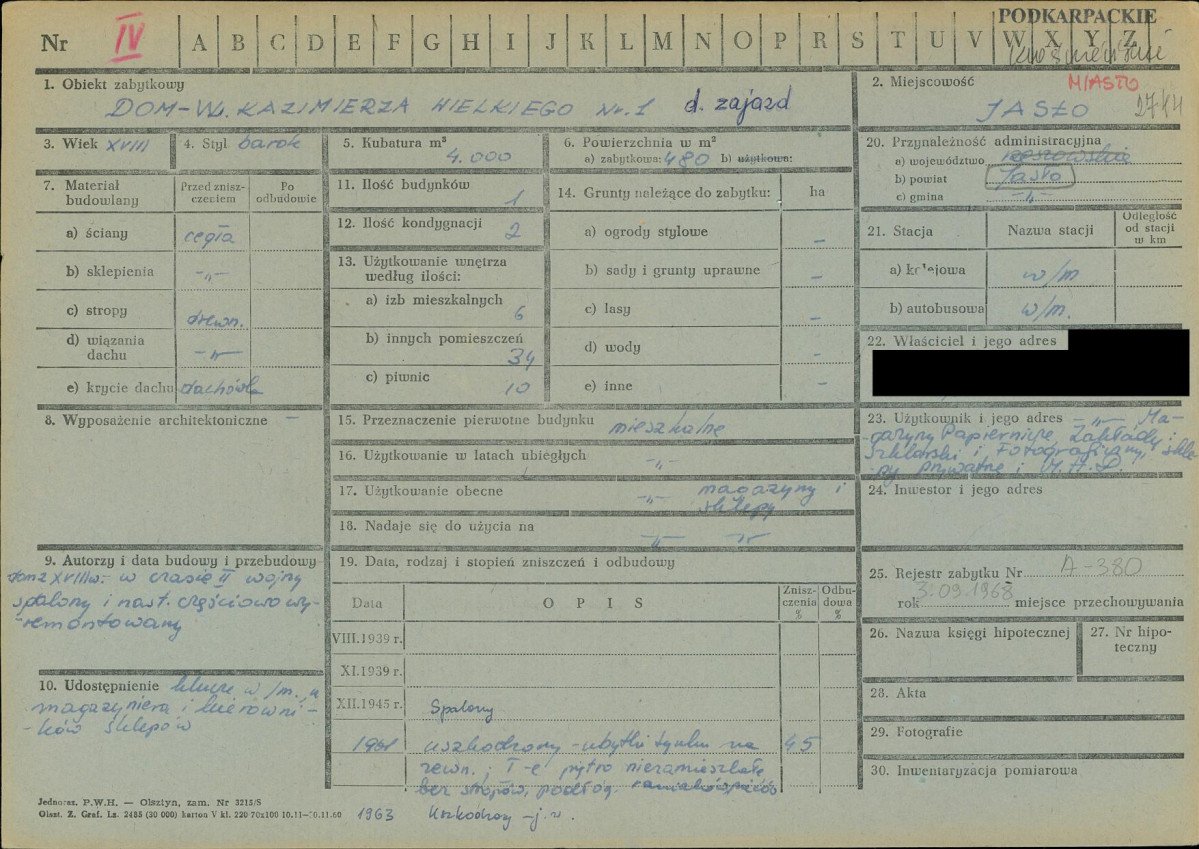 PODKARPACKIE
Nr IV A B C D E F G H I J K L M N O P R S T U V W X Y Z
1. Obiekt zabytkowy
DOM - Wł. KAZIMIERZA WIELKIEGO Nr. 1 d. zajazd
2. Miejscowość MIASTO
JASŁO
3. Wiek XVIII
4. Styl barok
5. Kubatura m³
4.000
6. Powierzchnia w m²
a) zabytkowa: 480 b) użytkown:
7. Materiał budowlany
Przed zniszczeniem
Po odbudowie
a) ściany cegła
b) sklepienia -„-
c) stropy drewn.
d) wiązania dachu -„-
e) krycie dachu dachówka
8. Wyposażenie architektoniczne –
9. Autorzy i data budowy i przebudowy
dom z XVIII w. - w czasie II wojny
spalony i nast. częściowo wy-
remontowany
10. Udostępnienie klucze w/m. u
magazyniera i kierowni-
-ków sklepów
11. Ilość budynków
1
12. Ilość kondygnacji 2
13. Użytkowanie wnętrza
według ilości:
a) izb mieszkalnych
6
b) innych pomieszczeń
34
c) piwnic
10
14. Grunty należące do zabytku: ha
a) ogrody stylowe –
b) sady i grunty uprawne –
c) lasy –
d) wody –
e) inne –
15. Przeznaczenie pierwotne budynku mieszkalne
16. Użytkowanie w latach ubiegłych -„-
17. Użytkowanie obecne -„- magazyny i
sklepy
18. Nadaje się do użycia na -„-
19. Data, rodzaj i stopień zniszczeń i odbudowy
Data
O P I S
Zniszczenia %
Odbudowa %
VIII.1939 r.
XI.1939 r.
XII.1945 r. Spalony
1961 uszkodzony - ubytki tynku na 45
zewn.; I-e piętro niezamieszkałe
bez stropów, podłóg,
1963 Uszkodzony - j.w.
20. Przynależność administracyjna
a) województwo rzeszowskie
b) powiat Jasło
c) gmina -„-
21. Stacja
Nazwa stacji
Odległość od stacji w km
a) kolejowa w/m
b) autobusowa w/m.
22. Właściciel i jego adres
23. Użytkownik i jego adres -„- Ma-
gazyny Papiernicze, Zakłady:
Szklarski i Fotograficzny, skle-
py prywatne i M.H.D.
24. Inwestor i jego adres
25. Rejestr zabytku Nr A-380
rok 3.09.1968 miejsce przechowywania
26. Nazwa księgi hipotecznej
27. Nr hipoteczny
28. Akta
29. Fotografie
30. Inwentaryzacja pomiarowa
Jednoraz. P.W.H. — Olsztyn, zam. Nr 3215/S
Olszt. Z. Graf. Lz. 2485 (30 000) karton V kl. 220 70x100 10.11—30.11.60